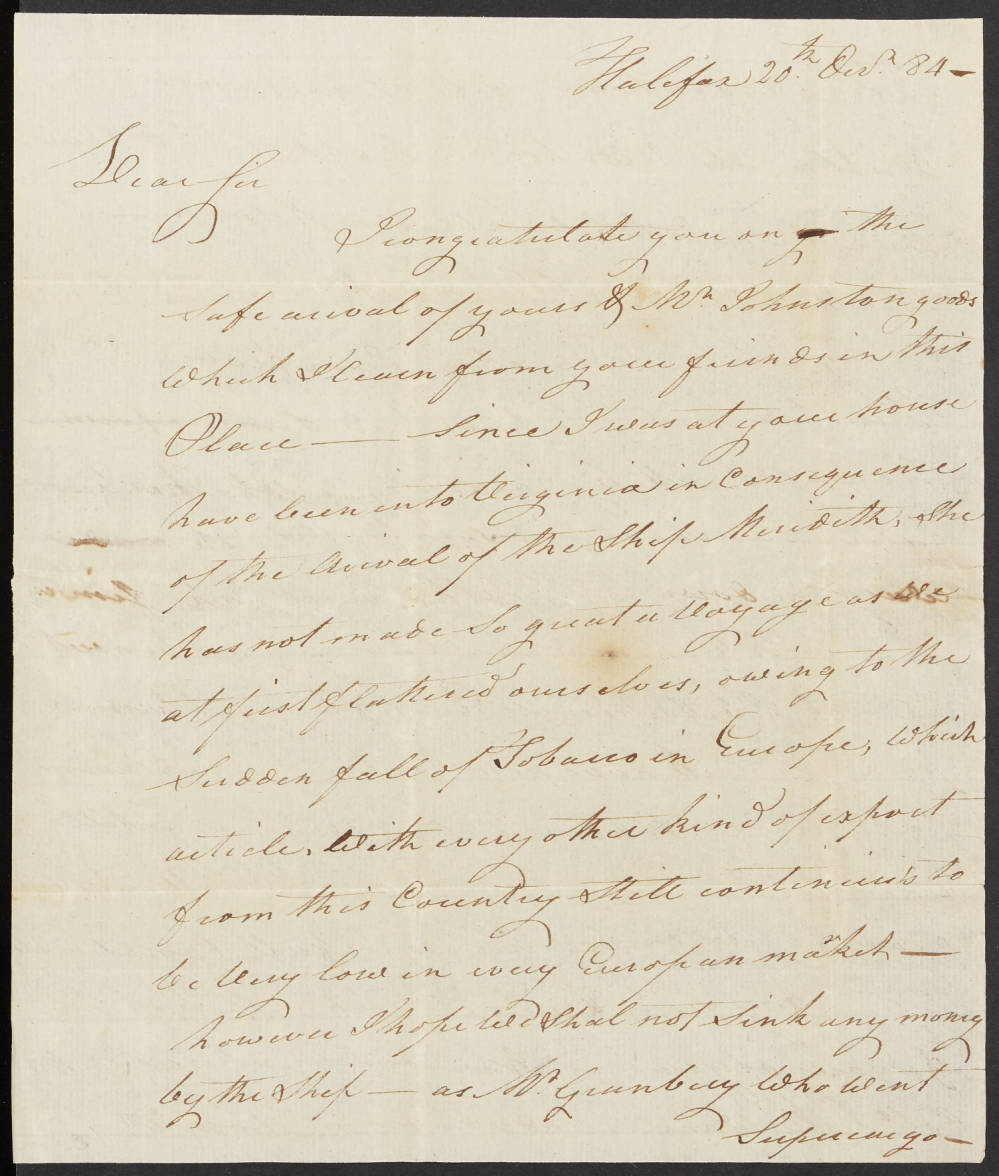 Halifax 20th. Decr. 84—
Dear Sir
I congratulate you on the
safe arival of yours & Mr Johnston goods
which I learn from your friends in this
Place — Since I was at your house
have been into Virginia in Consequence
of the Arival of the Ship Meridith, She
has not made So great a Voyage as we
at first flattered ourselves, owing to the
Sudden fall of Tobacco in Europe, which
article, with every other kind of export
from this Country Still continues to
be Very low in every European market —
however I hope we Shal not Sink any money
by the Ship — as Mr. Granbery who went
Supercargo —